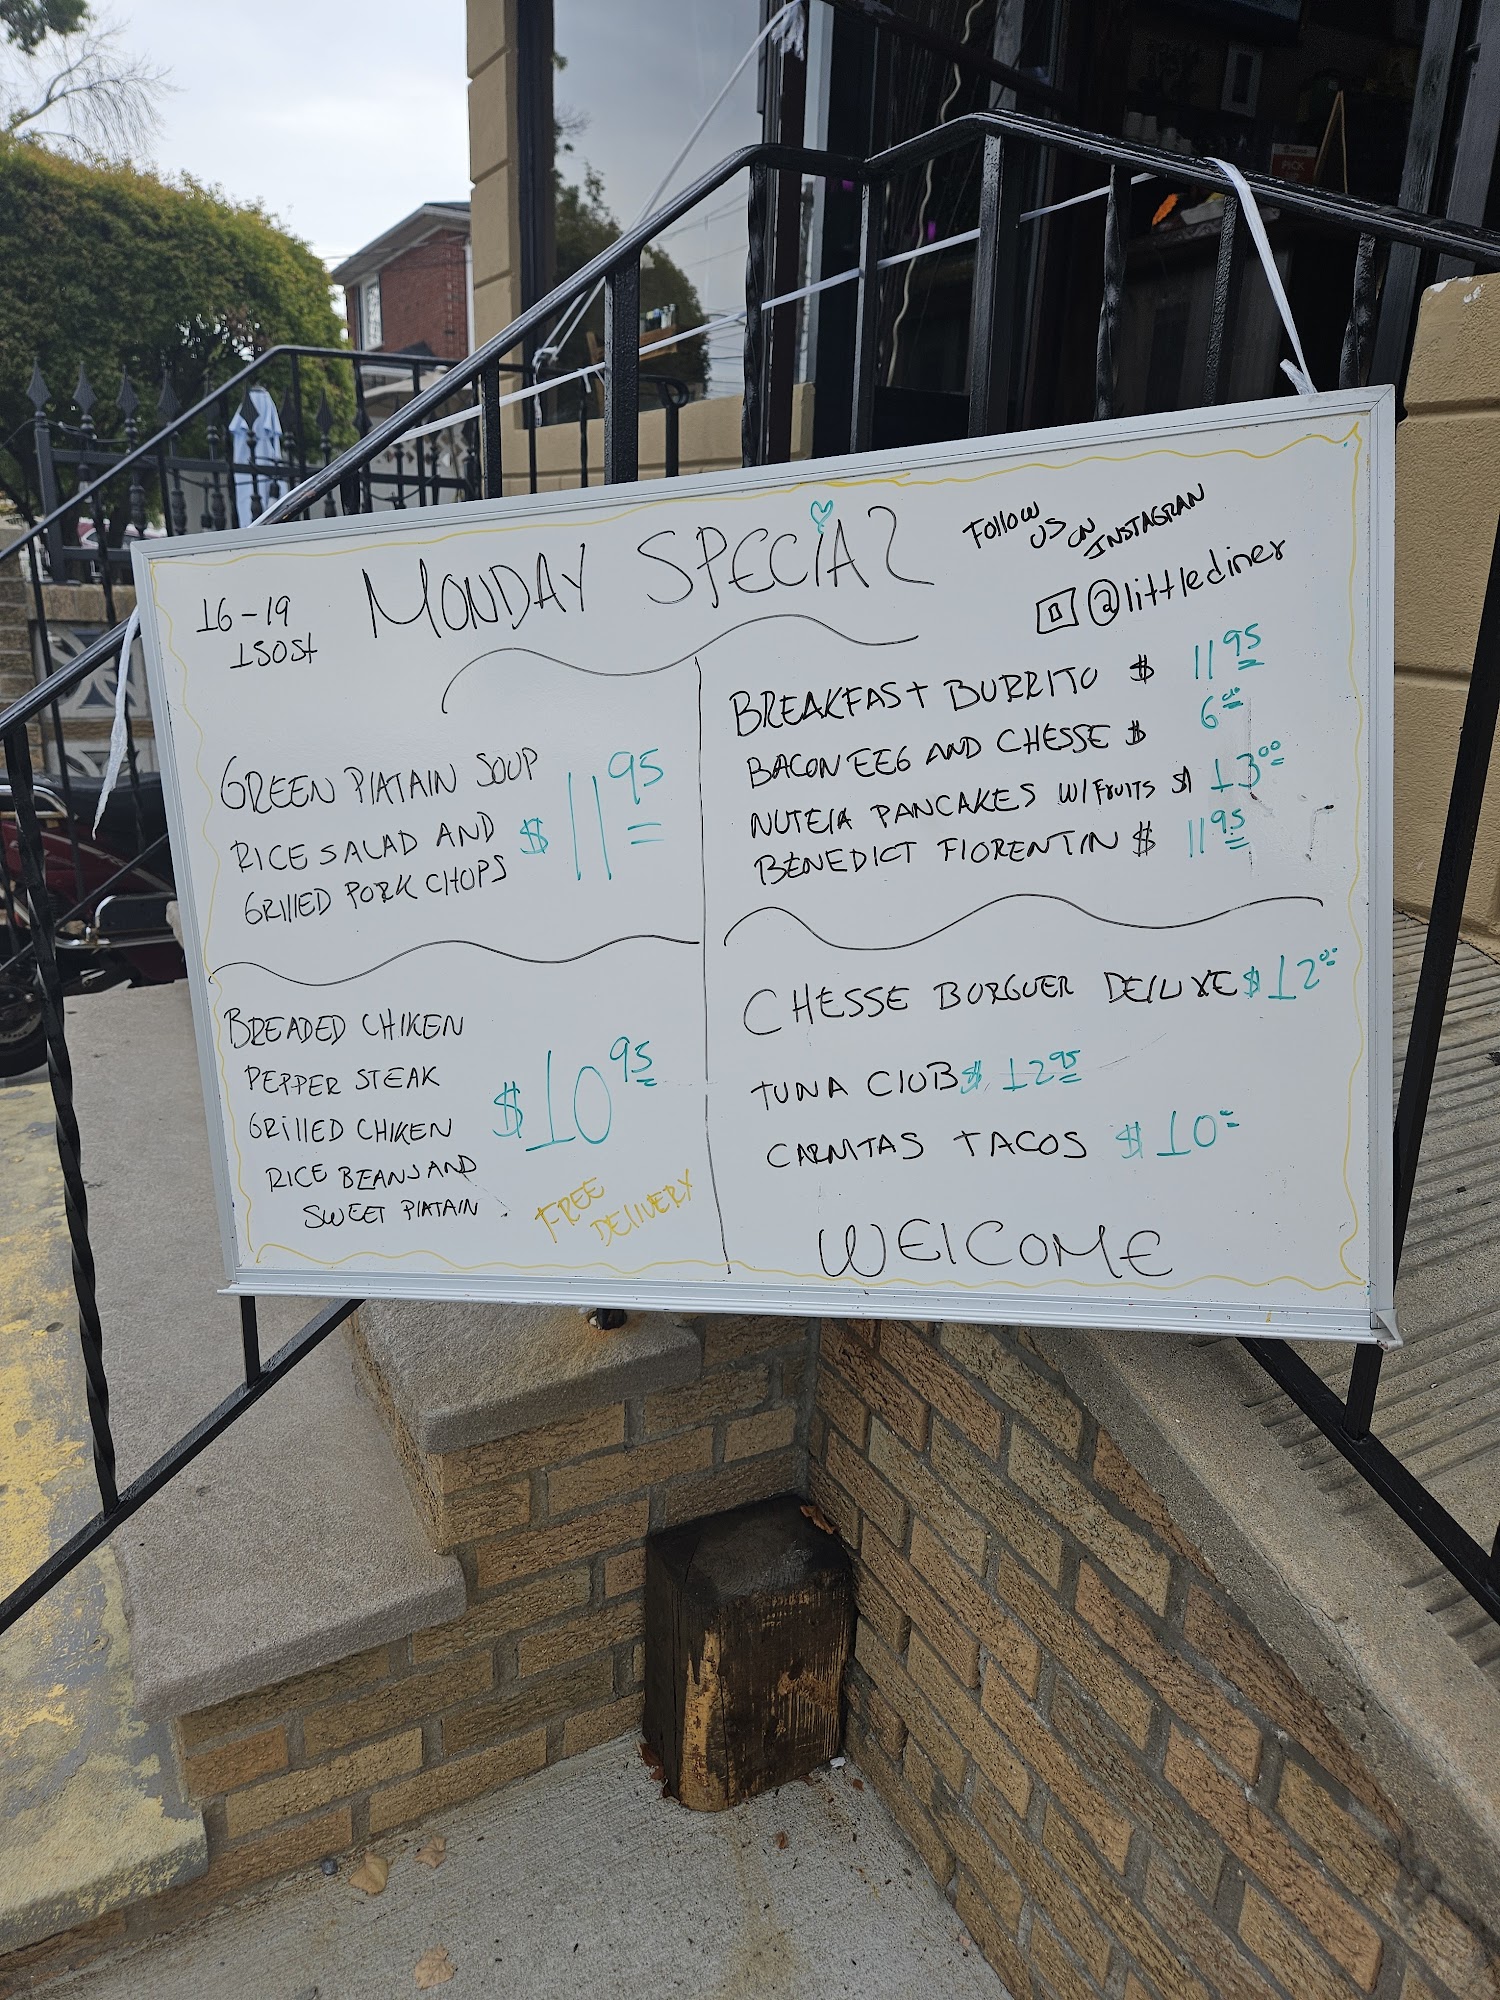 MONDAY SPECiAL
16-19
150st
FOllOW
US ON
INSTAGRAN
@littlediner
GREEN PlATAIN SOUP
RICE SALAD AND
GRIllED PORK CHOPS
$ 11 95
BREADED CHIKEN
PEPPER STEAK
GRillED CHIKEN
RICE BEANS AND
SWEET PlATAIN
$10 95
FREE
DElIVERY
BREAKFAST BURRITO $ 11 95
BACON EEG AND CHESSE $ 6 00
NUTElA PANCAKES W/FRUITS $ 13 00
BENEDICT FlORENTIN $ 11 95
CHESSE BURGUER DElUXE $12 00
TUNA ClUB $ 12 95
CARNITAS TACOS $ 10
WElCOME
PICK